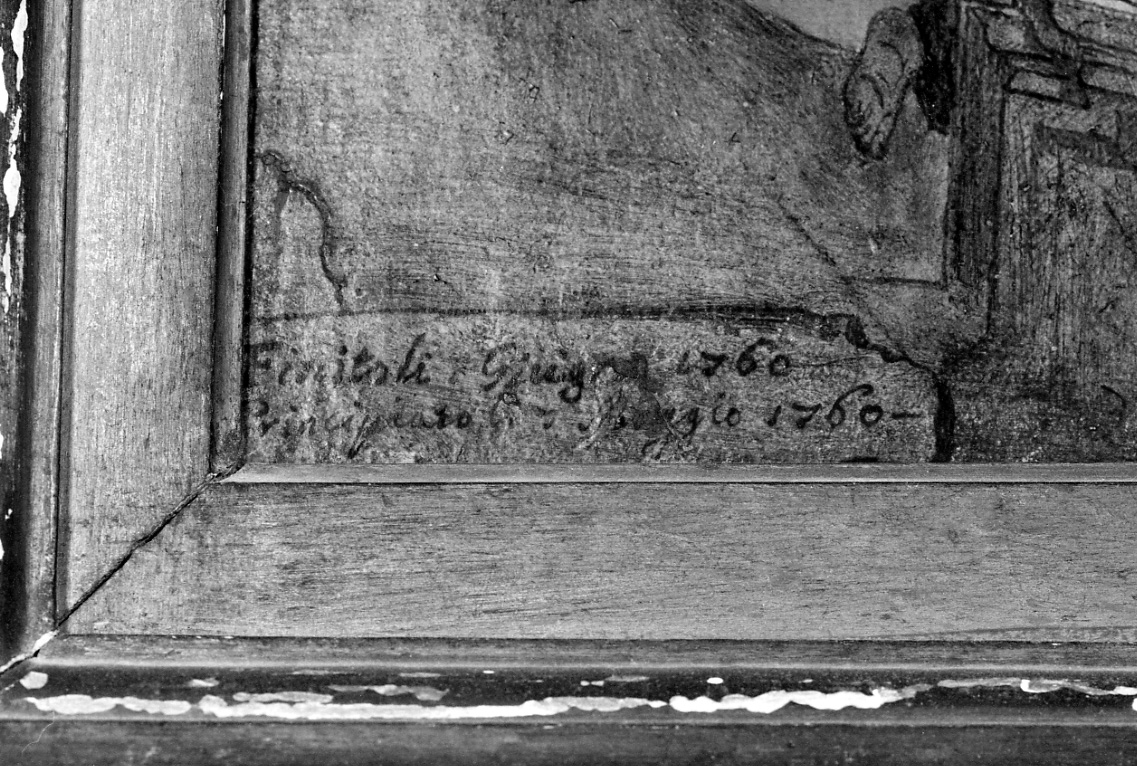 Finito li : Giugno 1760
Principiato li 7 Maggio 1760 –